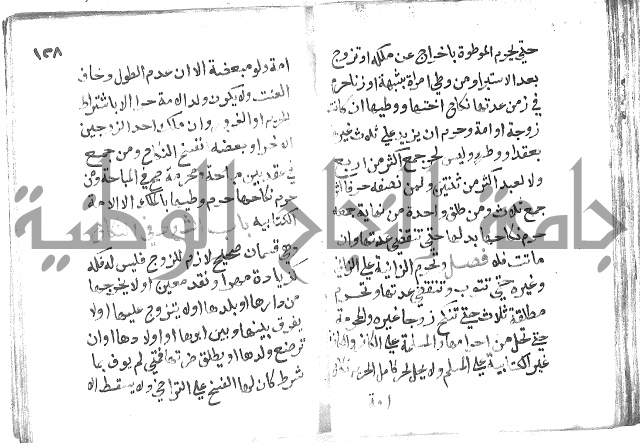 حتى يحرم الموطوة باخراج عن ملكه او تزوج
بعد الاستبرا ومن وطي امراة بشبهة او زنا حرم
في زمن عدتها نكاح اختها ووطيها ان كانت
زوجة او امة وحرم ان يزيد على ثلاث غيرها
بعقد او وطء وليس لحر جمع اكثر من اربع
ولا لعبد اكثر من ثنتين ولمن نصفه حر فاكثر
جمع ثلاث ومن طلق واحدة من نهاية جمعه
حرم نكاحه بدلها حتى تنقضي عدتها وان
ماتت فلا فصل وتحرم الزانية على الزاني
وغيره حتى تتوب وتنقضي عدتها وتحرم
مطلقة ثلاث حتى تنكح زوجا غيره والمحرمة
حتى تحل من احرامها والمسلمة على الكافر والكافرة
غير الكتابية على المسلم ولا يحل لحر كامل الحرية نكاح
امة
١٣٨
امة ولو مبعضة الا ان عدم الطول وخاف
العنت ولا يكون ولد الامة حرا الا باشتراط
الحرية او الغرور وان ملك احد الزوجين
الاخر او بعضه انفسخ النكاح ومن جمع
في عقد بين مباحة ومحرمة صح في المباحة ومن
حرم نكاحها حرم وطيها بالملك الا الامة
الكتابية باب الشروط في النكاح
وهي قسمان صحيح لازم للزوج فليس له فكه
كزيادة مهر او نقد معين او لا يخرجها
من دارها او بلدها او لا يتزوج عليها او لا
يفرق بينها وبين ابويها او اولادها او ان
ترضع ولدها او يطلق ضرتها فمتى لم يوف بما
شرط كان لها الفسخ على التراخي ولا يسقط الا
جامعة النجاح الوطنية